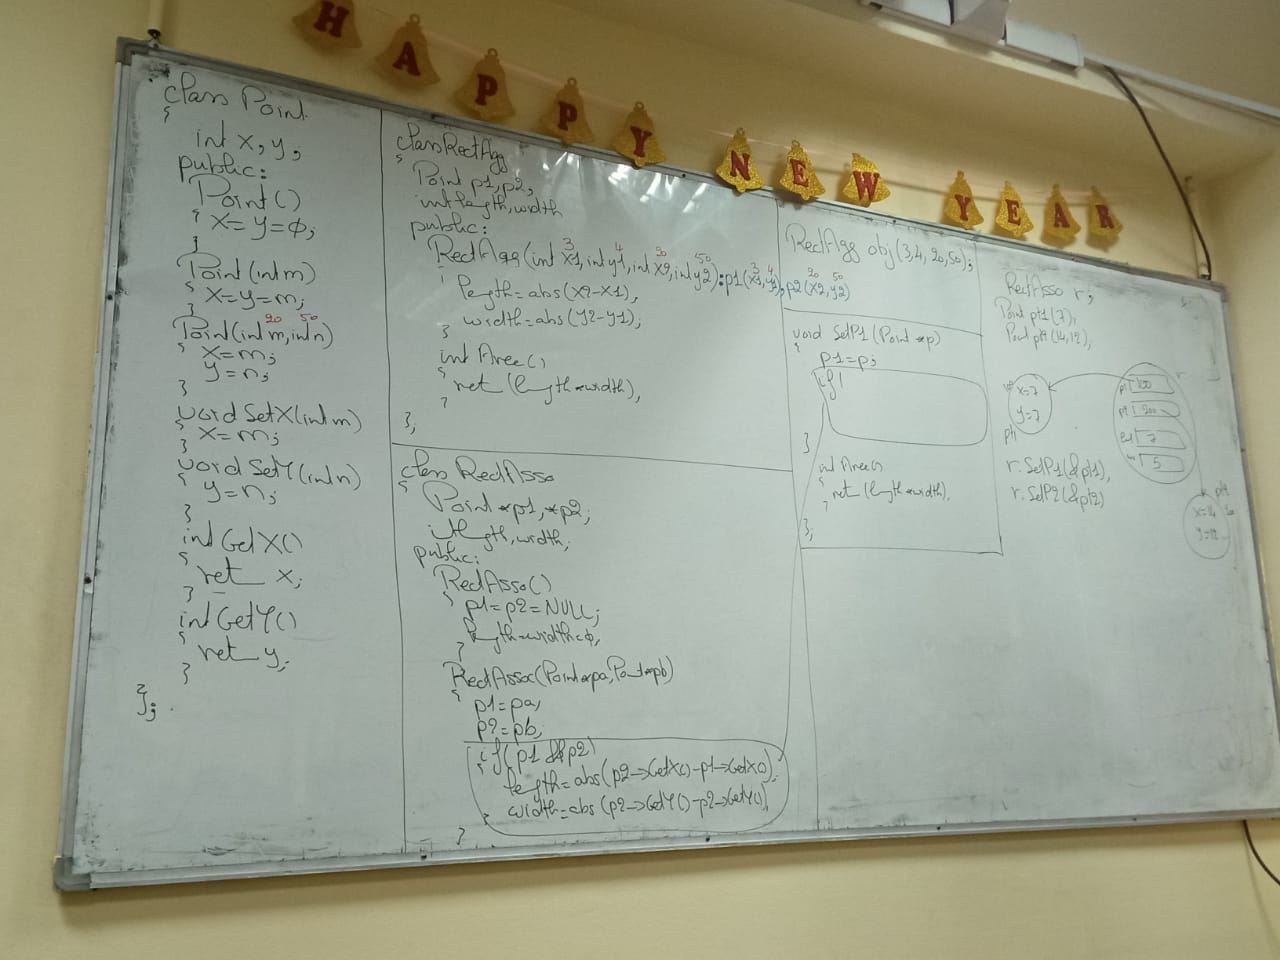 HAPPY NEW YEAR
class Point
{
int x, y;
public:
Point()
{ x=y=φ;
}
Point(int m)
{ x=y=m;
}
20 50
Point(int m, int n)
{ x=m;
y=n;
}
void SetX(int m)
{ x=m;
}
void SetY(int n)
{ y=n;
}
int GetX()
{
ret x;
}
int GetY()
{
ret y;
}
};
class RectAgg
{
Point p1, p2;
int length, width
public:
3 4 20 50 3 4 20 50
RectAgg(int x1, int y1, int x2, int y2):p1(x1,y1),p2(x2,y2)
{
length=abs(x2-x1);
width=abs(y2-y1);
}
int Area()
{
ret (length*width);
}
};
class RectAsso
{
Point *p1, *p2;
int length, width;
public:
RectAsso()
{ p1=p2=NULL;
length=width=φ;
}
RectAssoc(Point *pa, Point *pb)
{
p1=pa;
p2=pb;
if(p1 && p2)
{
length=abs(p2->GetX()-p1->GetX());
width=abs(p2->GetY()-p2->GetY());
}
}
RectAgg obj(3,4, 20,50);
void SetP1(Point *p)
{
p1=p;
if(
}
int Area()
{
ret (length*width);
}
};
RectAsso r;
Point pt1(7);
Point pt2(14,12);
x=7
y=7
pt1
r
p1 100
p2 200
7
5
r.SetP1(&pt1);
r.SetP2(&pt2)
pt2
x=14
y=12